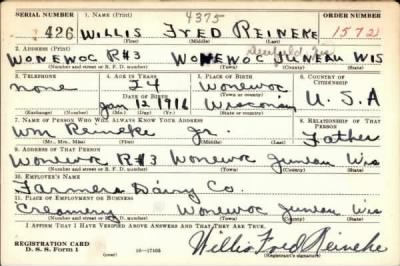 SERIAL NUMBER 1. NAME (Print) 4375 ORDER NUMBER
426 WILLIS FRED REINEKE 1572
(First) (Middle) (Last)
2. ADDRESS (Print)
WONEWOC R#3 WONEWOC JUNEAU WIS
(Number and street or R. F. D. number) (Town) (County) (State)
3. TELEPHONE 4. AGE IN YEARS 5. PLACE OF BIRTH 6. COUNTRY OF CITIZENSHIP
none 24 Wonewoc
DATE OF BIRTH (Town or county)
Jan 12 1916 Wisconsin U.S.A
(Exchange) (Number) (Mo.) (Day) (Yr.) (State or country)
7. NAME OF PERSON WHO WILL ALWAYS KNOW YOUR ADDRESS 8. RELATIONSHIP OF THAT PERSON
Wm Reineke Jr. Father
(Mr., Mrs., Miss) (First) (Middle) (Last)
9. ADDRESS OF THAT PERSON
Wonewoc R#3 Wonewoc Juneau Wis
(Number and street or R. F. D. number) (Town) (County) (State)
10. EMPLOYER'S NAME
Farmers Dairy Co.
11. PLACE OF EMPLOYMENT OR BUSINESS
Creamery Wonewoc Juneau Wis
(Number and street or R. F. D. number) (Town) (County) (State)
I AFFIRM THAT I HAVE VERIFIED ABOVE ANSWERS AND THAT THEY ARE TRUE.
REGISTRATION CARD
D. S. S. Form 1 16—17105 Willis Fred Reineke
(Registrant's signature)